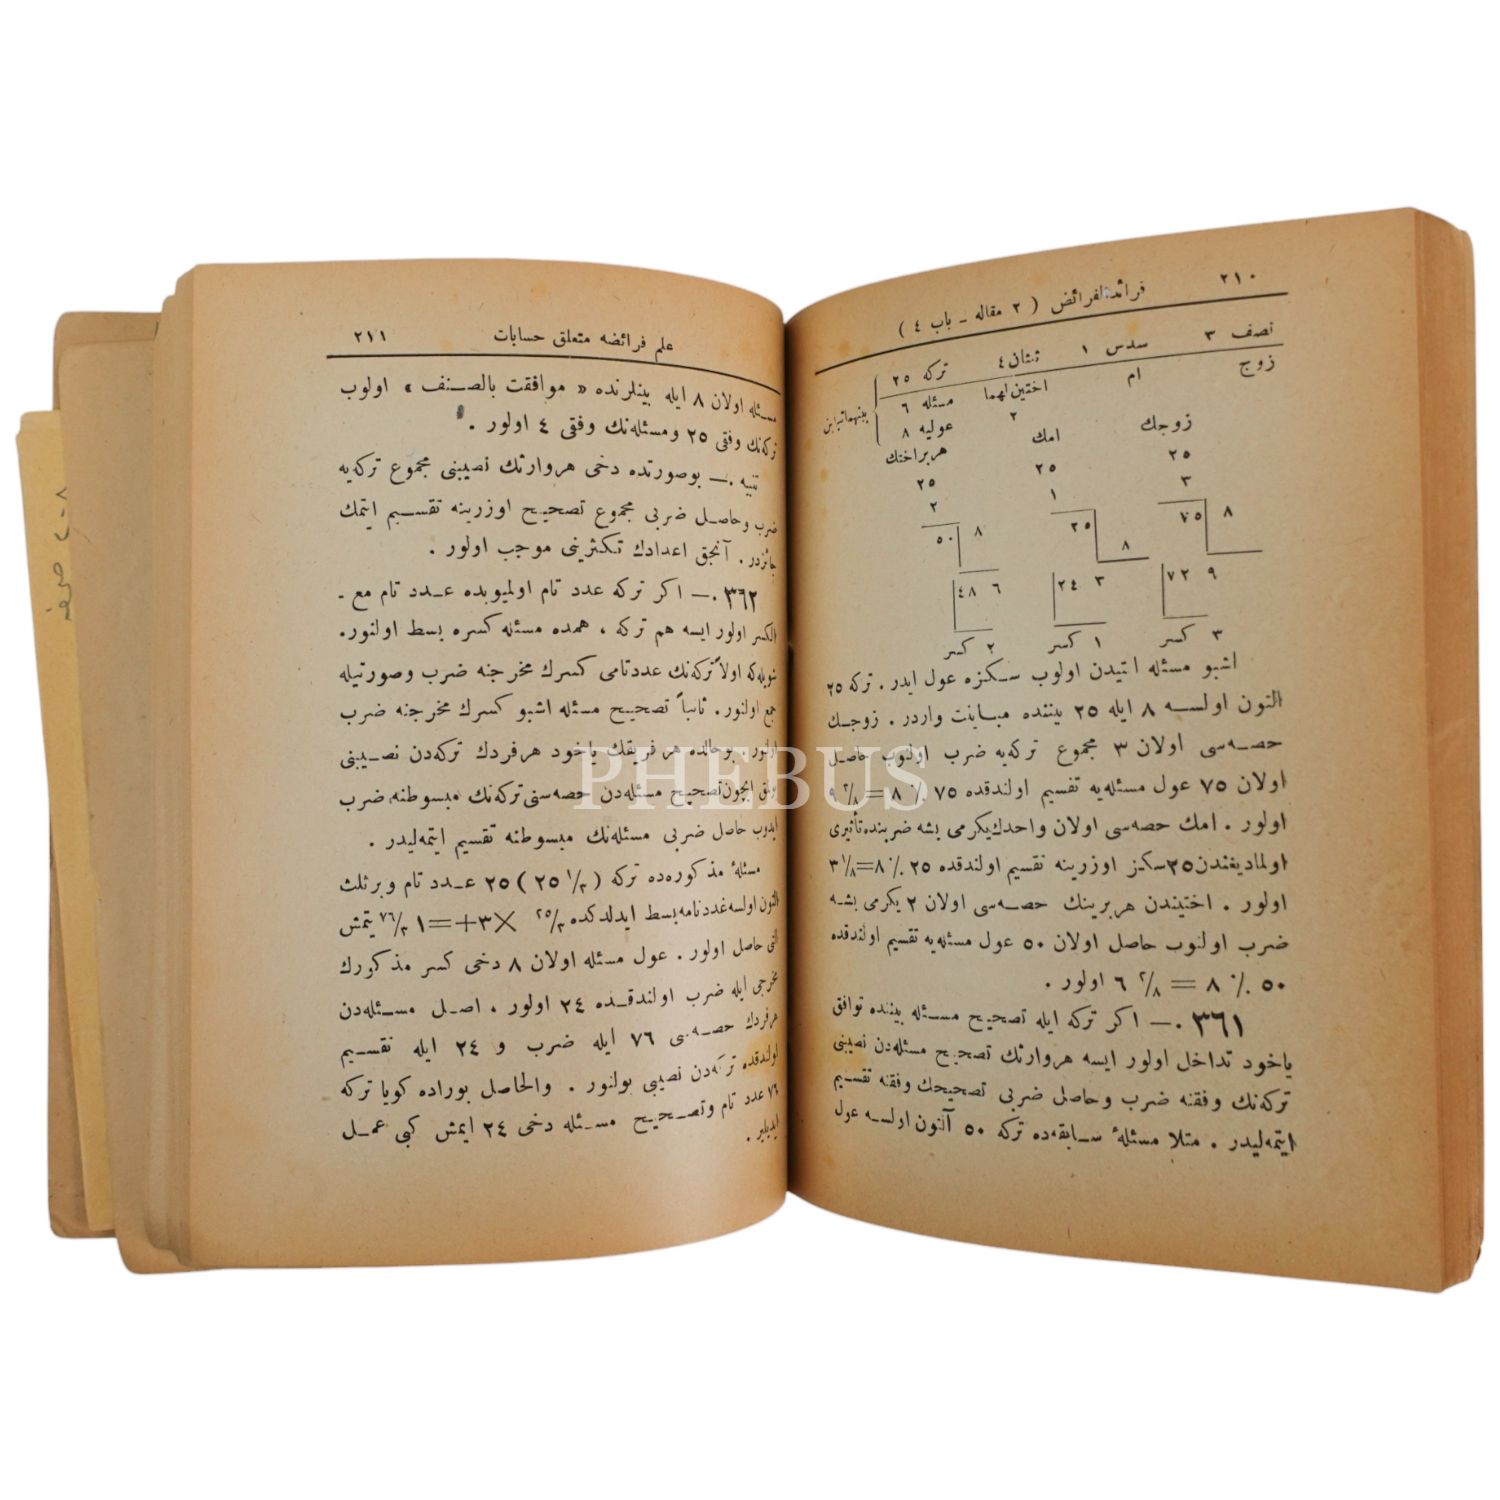 ٢١٠
فرائدالفرائض ( ٢ مقاله ـ باب ٤ )
نصف ٣ سدس ١ ثلثان ٤ تركه ٢٥
زوج ام اختين لهما مسئله ٦
٢ عوليه ٨
زوجك امك هربراختك
٢٥ ٢٥ ٢٥
٣ ١ ٢
٨ ٧٥ ٨ ٢٥ ٨ ٥٠
٩ ٧٢ ٣ ٢٤ ٦ ٤٨
٣ كسر ١ كسر ٢ كسر
اشبو مسئله التيدن اولوب سكزه عول ايدر . تركه ٢٥
التون اولسه ٨ ايله ٢٥ بيننده مباينت واردر . زوجك
حصه‌سى اولان ٣ مجموع تركه‌يه ضرب اولنوب حاصل
اولان ٧٥ عول مسئله‌يه تقسيم اولندقده ٧٥ ٪ ٨ =
اولور . امك حصه‌سى اولان واحدك يكرمى بشه ضربنده تأثيرى
اولماديغندن ٢٥ سكز اوزرينه تقسيم اولندقده ٢٥ ٪ ٨ = ١/٨ ٣
اولور . اختيندن هربرينك حصه‌سى اولان ٢ يكرمى بشه
ضرب اولنوب حاصل اولان ٥٠ عول مسئله‌يه تقسيم اولندقده
٥٠ ٪ ٨ = ٢/٨ ٦ اولور .
٣٦١ .— اكر تركه ايله تصحيح مسئله بيننده توافق
ياخود تداخل اولور ايسه هروارثك تصحيح مسئله‌دن نصيبنى
تركه‌نك وفقنه ضرب وحاصل ضربى تصحيحك وفقنه تقسيم
ايتمه‌ليدر . مثلا مسئلهٔ سابقه‌ده تركه ٥٠ آلتون اولسه عول
علم فرائضه متعلق حسابات ٢١١
مسئله اولان ٨ ايله بينلرنده « موافقت بالصنف » اولوب
تركه‌نك وفقى ٢٥ ومسئله‌نك وفقى ٤ اولور .
تنبيه .— بوصورتده دخى هروارثك نصيبنى مجموع تركه‌يه
ضرب وحاصل ضربى مجموع تصحيح اوزرينه تقسيم ايتمك
جائزدر . آنجق اعدادك تكثرينى موجب اولور .
٣٦٢ .— اكر تركه عدد تام اولميوبده عدد تام مع ـ
الكسر اولور ايسه هم تركه ، همده مسئله كسره بسط اولنور .
شويله‌كه اولاً تركه‌نك عددتامى كسرك مخرجنه ضرب وصورتيله
جمع اولنور . ثانياً تصحيح مسئله اشبو كسرك مخرجنه ضرب
اولنور . بوحالده هر فريقك ياخود هرفردك تركه‌دن نصيبنى
ايچون تصحيح مسئله‌دن حصه‌سنى تركه‌نك مبسوطنه ضرب
ايدوب حاصل ضربى مسئله‌نك مبسوطنه تقسيم ايتمه‌ليدر .
مسئلهٔ مذكوره‌ده تركه ( ١/٣ ٢٥ ) ٢٥ عدد تام وبرثلث
التون اولسه بسط ايدلدكده ٢٥/٣ × ٣ + = ١ ٧٦/٣ يتمش
التى حاصل اولور . عول مسئله اولان ٨ دخى كسر مذكورك
مخرجى ايله ضرب اولندقده ٢٤ اولور . اصل مسئله‌دن
هرفردك حصه‌سى ٧٦ ايله ضرب و ٢٤ ايله تقسيم
اولندقده تركه‌دن نصيبى بولنور . والحاصل بوراده كويا تركه
٧٦ عدد تام وتصحيح مسئله دخى ٢٤ ايمش كبى عمل
ايديلير .
PHEBUS